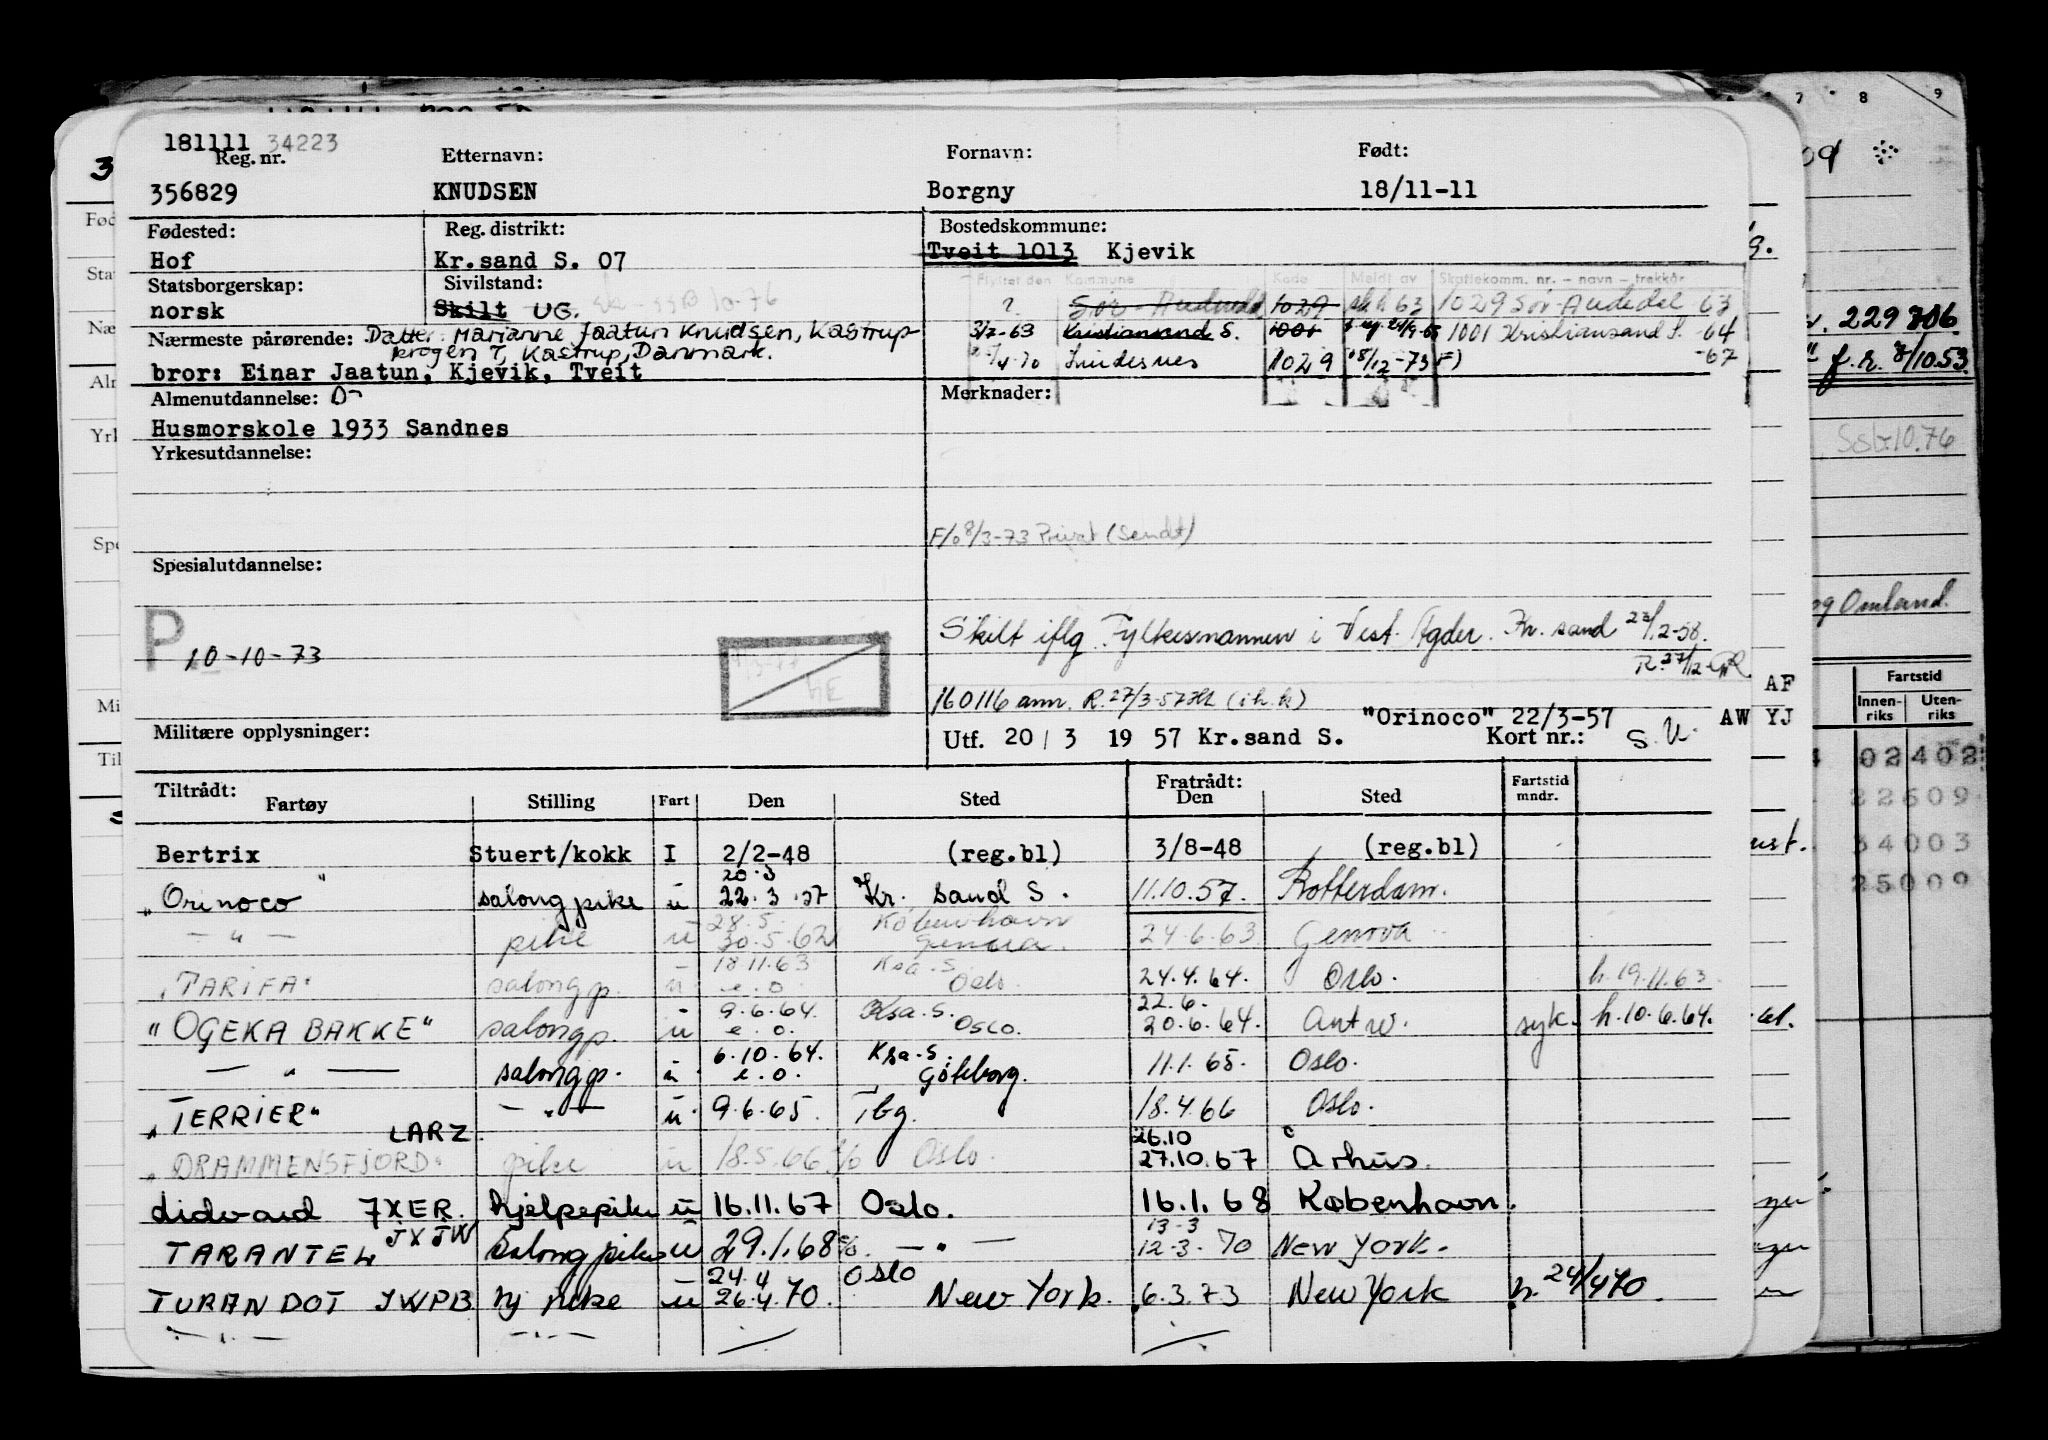 181111 34223
Reg. nr. Etternavn: Fornavn: Født:
356829 KNUDSEN Borgny 18/11-11
Fødested: Reg. distrikt: Bostedskommune:
Hof Kr.sand S. 07 Tveit 1013 Kjevik
Statsborgerskap: Sivilstand: Flyttet den Kommune Kode Meldt av Skattekomm. nr. - navn - trekkår
norsk Skilt UG. 10-76 ? Sør-Audnedal 1029 63 1029 Sør-Audedal 63
Nærmeste pårørende: Datter: Marianne Jaatun Knudsen, Kastrup 3/7-63 Kristiansand S. 1001 1001 Kristiansand S. -64
krogen 7, Kastrup, Danmark. 1/4-70 Lindesnes 1029 18/12-73 F) -67
bror: Einar Jaatun, Kjevik, Tveit
Almenutdannelse: D- Merknader:
Husmorskole 1933 Sandnes
Yrkesutdannelse:
F/o 8/3-73 Privat (Sendt)
Spesialutdannelse:
Skilt iflg. Fylkesmannen i Vest-Agder. Kr. sand 23/12-58.
P 10-10-73
R. 27/12-GR
160116 ann. R. 27/3-57 (i.h.k)
AF
"Orinoco" 22/3-57 AW YJ
Militære opplysninger: Utf. 20/3 1957 Kr.sand S. Kort nr.: S.U.
Tiltrådt: Fratrådt: Fartstid
Fartøy Stilling Fart Den Sted Den Sted mndr.
Bertrix Stuert/kokk I 2/2-48 (reg.bl) 3/8-48 (reg.bl)
20.3
"Orinoco" salongpike u 22.3.57 Kr. sand S. 11.10.57. Rotterdam.
28.5. København
- " - pike u 30.5.62 Genua. 24.6.63 Genova
18.11.63 Ksa. S.
"TARIFA" salongp. u e.o. Oslo. 24.4.64. Oslo. h. 19.11.63
9.6.64. Ksa. S. 22.6.
"OGEKA BAKKE" salongp. u e.o. Oslo. 20.6.64. Antw. syk. h. 10.6.64.
6.10.64. Ksa. S.
- " - salongp. u e.o. Göteborg. 11.1.65. Oslo.
"TERRIER" - " - u 9.6.65. Tbg. 18.4.66 Oslo.
LARZ 26.10
"DRAMMENSFJORD" pike u 18.5.66 Oslo. 27.10.67 Århus.
Lidvard JXER. hjelpepike u 16.11.67 Oslo. 16.1.68 København.
JXJW 13-3
TARANTEL Salongpike u 29.1.68 - " - 12-3-70 New York.
24.4 Oslo
TURANDOT JWPB pike u 26.4.70. New York. 6.3.73 New York h. 24/4 70.
- " - - " -
7 8 9
229306
f.r. 8/10.53
10.76
Omland.
Fartstid
Innen-riks Uten-riks
02 402
22609
34003
25009